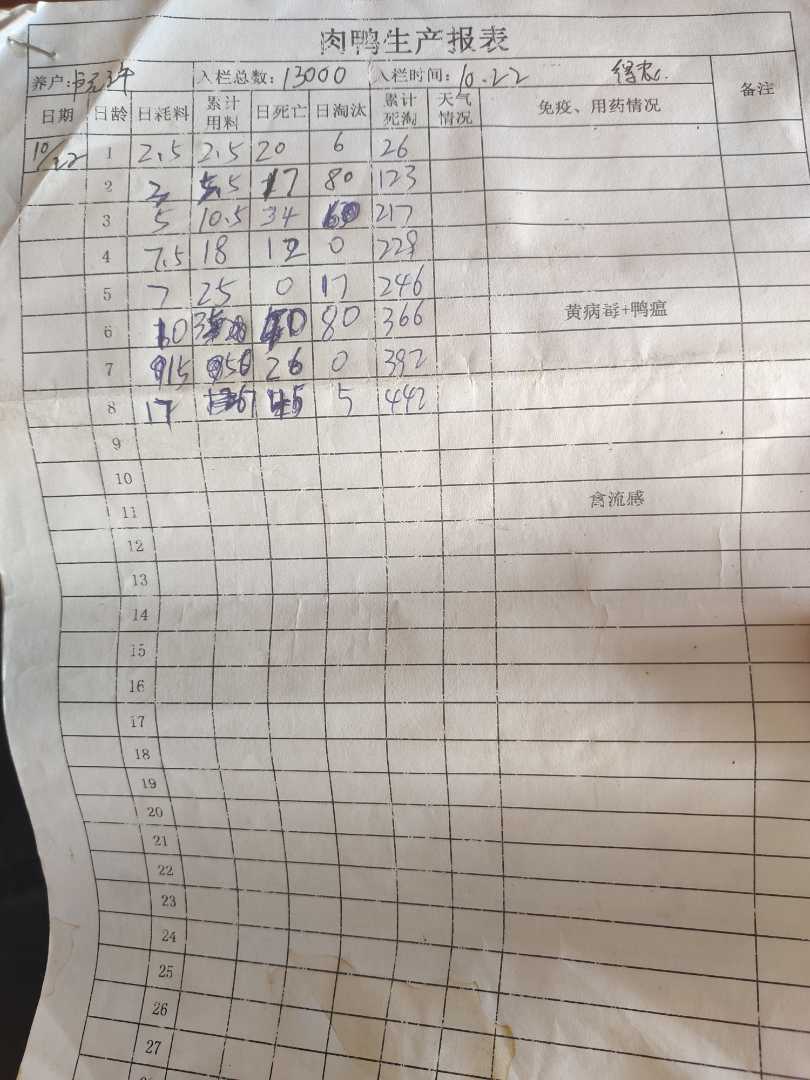 肉鸭生产报表
养户: 入栏总数: 13000 入栏时间: 10.22
日期 日龄 日耗料 累计用料 日死亡 日淘汰 累计死淘 天气情况 免疫、用药情况 备注
10/22 1 2.5 2.5 20 6 26
2 5.5 17 80 123
3 5 10.5 34 60 217
4 7.5 18 12 0 228
5 7 25 0 17 246 黄病毒+鸭瘟
6 10 35 40 80 366
7 15 50 26 0 392
8 17 67 45 5 442
9
10
11 禽流感
12
13
14
15
16
17
18
19
20
21
22
23
24
25
26
27